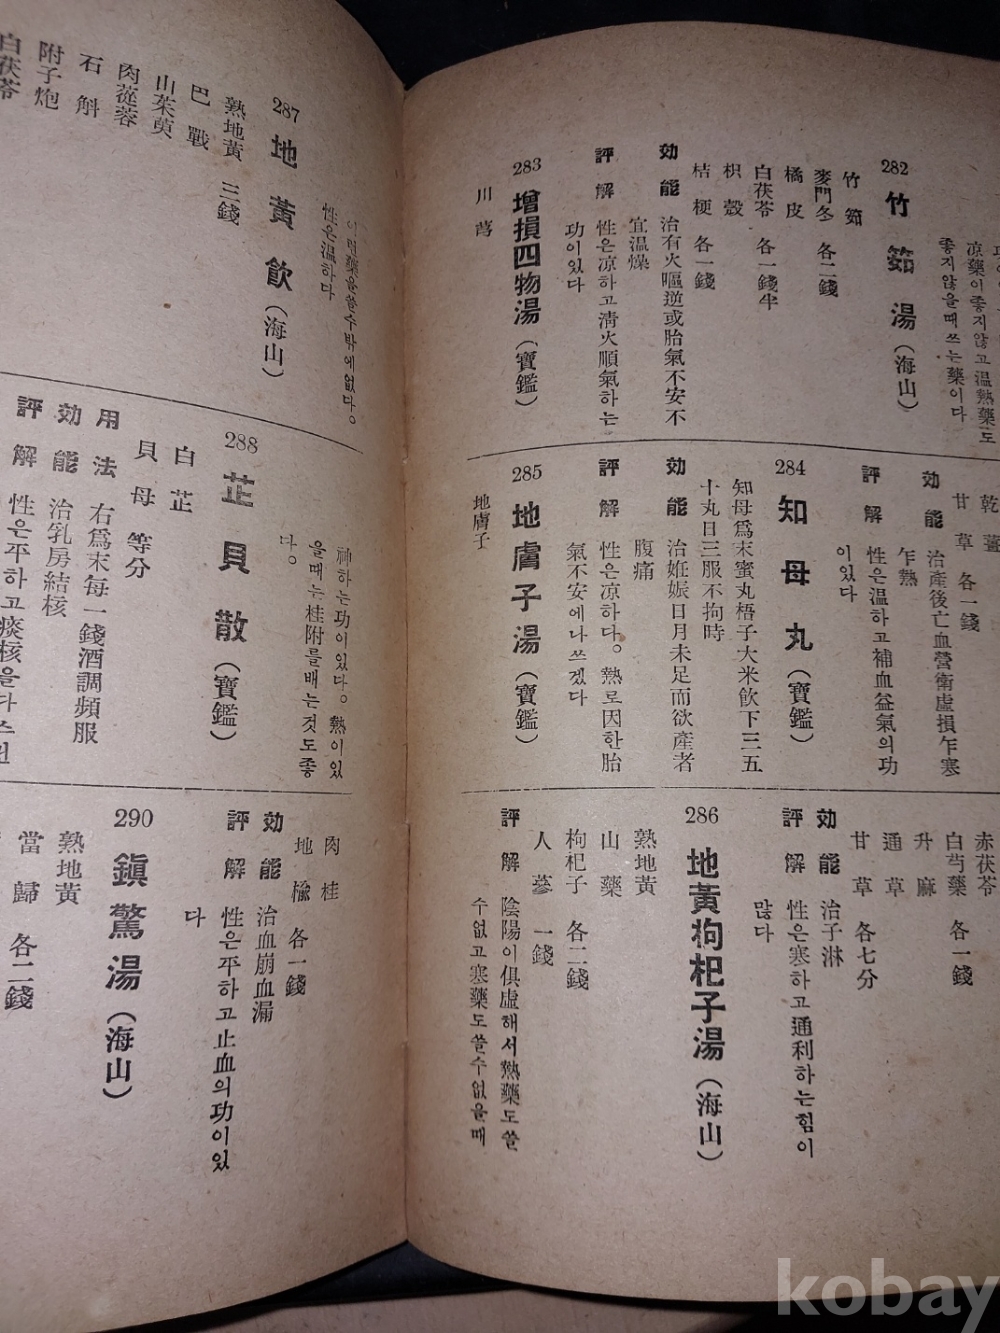 凉藥이 좋지않고 温熱藥도
좋지않을때 쓰는 藥이다
282 竹茹湯 (海山)
竹茹
麥門冬 各二錢
橘皮
白茯苓 各一錢半
枳殼
桔梗 各一錢
効能 治有火嘔逆或胎氣不安不
宜温燥
評解 性은 凉하고 淸火順氣하는
功이있다
283 增損四物湯 (寶鑑)
川芎
乾薑
甘草 各一錢
効能 治產後亡血營衛虛損乍寒
乍熱
評解 性은 温하고 補血益氣의 功
이있다
284 知母丸 (寶鑑)
知母爲末蜜丸梧子大米飮下三五
十丸日三服不拘時
効能 治姙娠日月未足而欲產者
腹痛
評解 性은 凉하다。熱로 因한 胎
氣不安에나 쓰겠다
285 地膚子湯 (寶鑑)
地膚子
赤茯苓
白芍藥 各一錢
升麻
通草
甘草 各七分
効能 治子淋
評解 性은 寒하고 通利하는 힘이
많다
286 地黃枸杞子湯 (海山)
熟地黃
山藥
枸杞子 各二錢
人蔘 一錢
評解 陰陽이 俱虛해서 熱藥도 쓸
수없고 寒藥도 쓸수없을때
이런藥을 쓸수밖에없다。
性은 温하다
287 地黃飮 (海山)
熟地黃 三錢
巴戟
山茱萸
肉蓯蓉
石斛
附子炮
白茯苓
神하는 功이있다。熱이있
을때는 桂附를 빼는것도좋
다。
288 芷貝散 (寶鑑)
白芷
貝母 等分
用法 右爲末每一錢酒調頻服
効能 治乳房結核
評解 性은 平하고 痰核을
肉桂
地楡 各一錢
効能 治血崩血漏
評解 性은 平하고 止血의 功이있
다
290 鎭驚湯 (海山)
熟地黃
當歸 各二錢
kobay